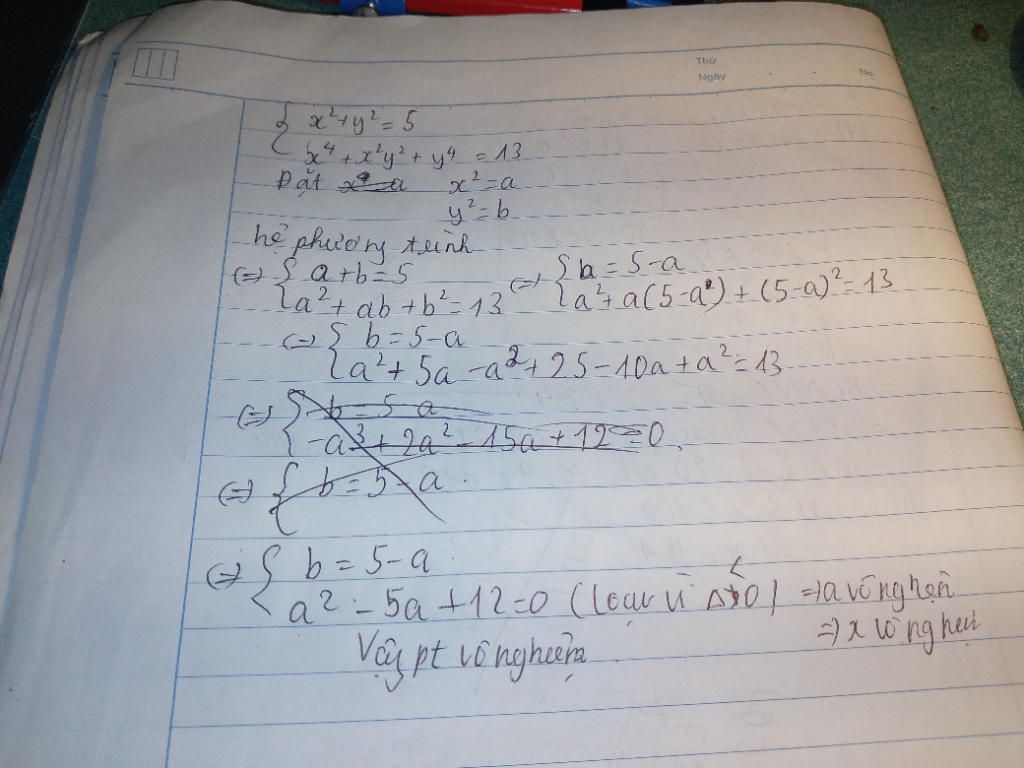 Thứ
Ngày . . No.
{ x² + y² = 5
x⁴ + x²y² + y⁴ = 13
Đặt x² = a
y² = b
hệ phương trình
(=) { a + b = 5 (=) { b = 5 - a
a² + ab + b² = 13 a² + a(5 - a) + (5 - a)² = 13
(=) { b = 5 - a
a² + 5a - a² + 25 - 10a + a² = 13
(=) { b = 5 - a
-a³ + 2a² - 15a + 12 = 0
(=) { b = 5 - a
(=) { b = 5 - a
a² - 5a + 12 = 0 (Loại vì Δ < 0) => a vô nghiệm
=> x vô nghiệm
Vậy pt vô nghiệm